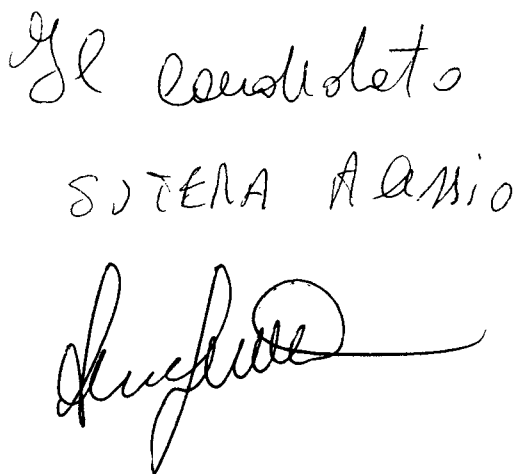 Il candidato
SUTERA Alessio